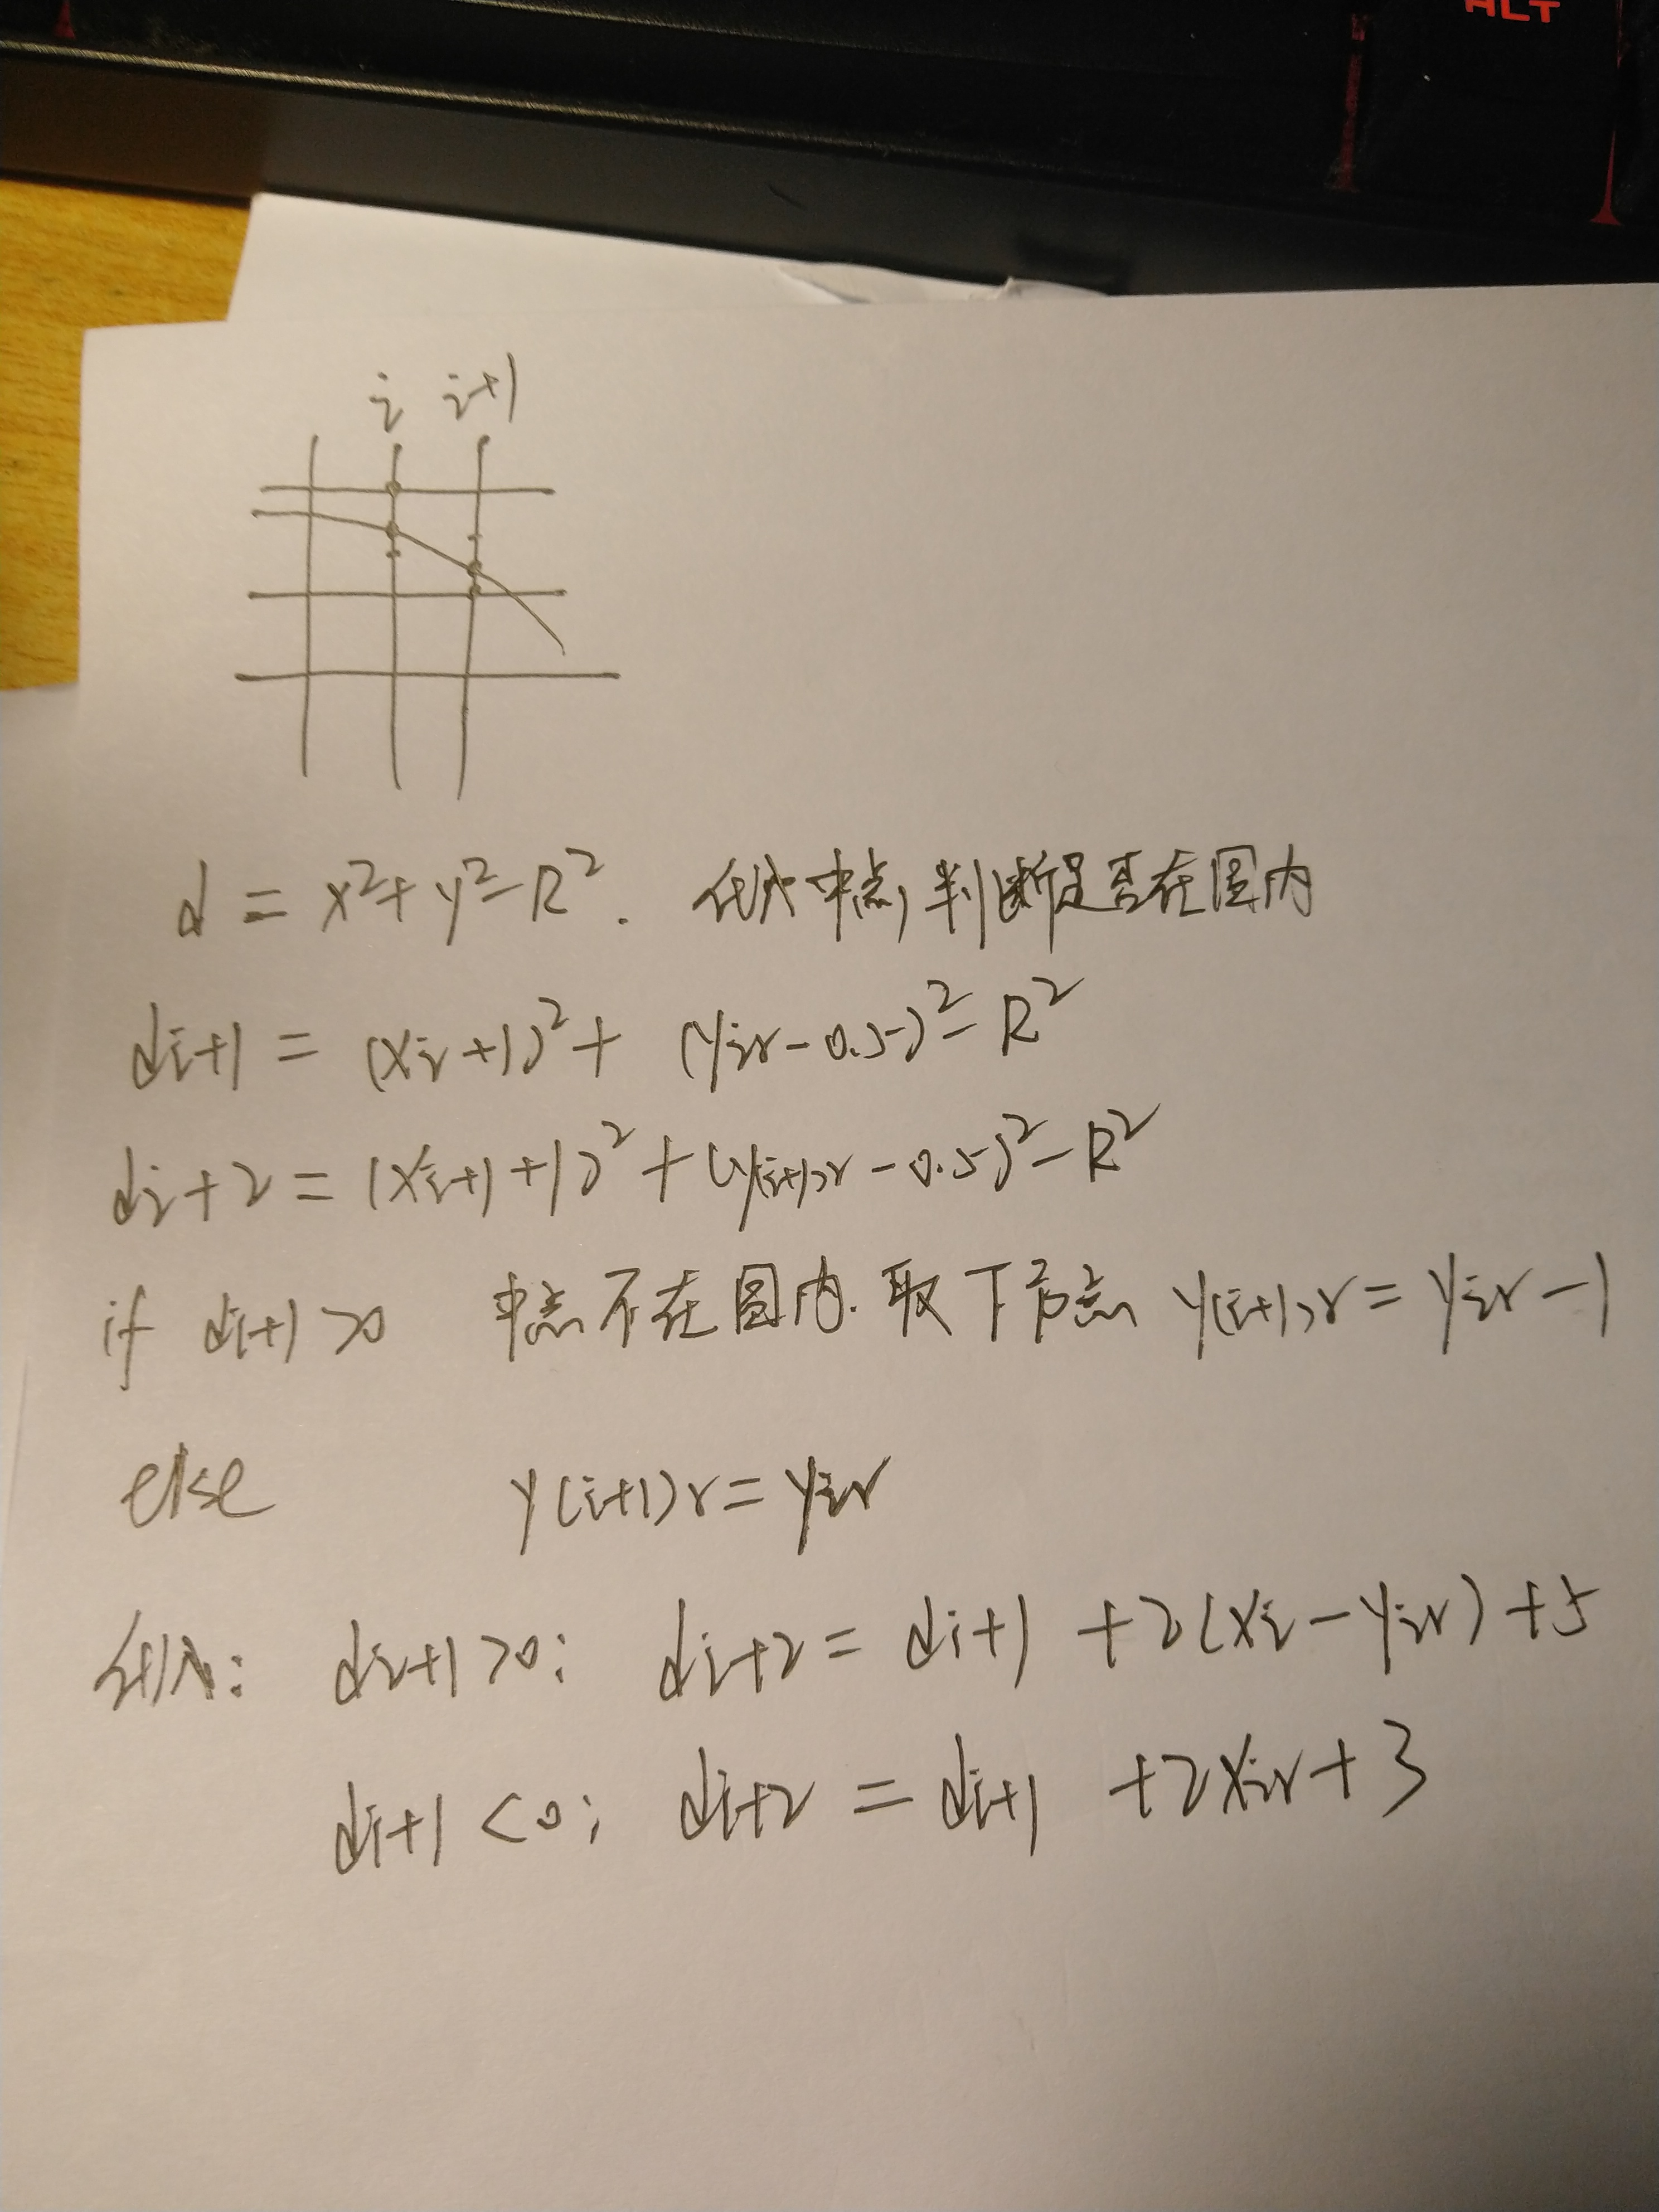 ALT
i i+1
d = x²+y²-R². 代入中点,判断是否在圆内
di+1 = (xi+1)²+ (yir-0.5)²-R²
di+2 = (xi+1+1)²+(y(i+1)r-0.5)²-R²
if di+1>0 中点不在圆内.取下方点 y(i+1)r = yir-1
else y(i+1)r = yir
代入: di+1>0; di+2 = di+1 +2(xi-yir)+5
di+1<0; di+2 = di+1 +2xir+3